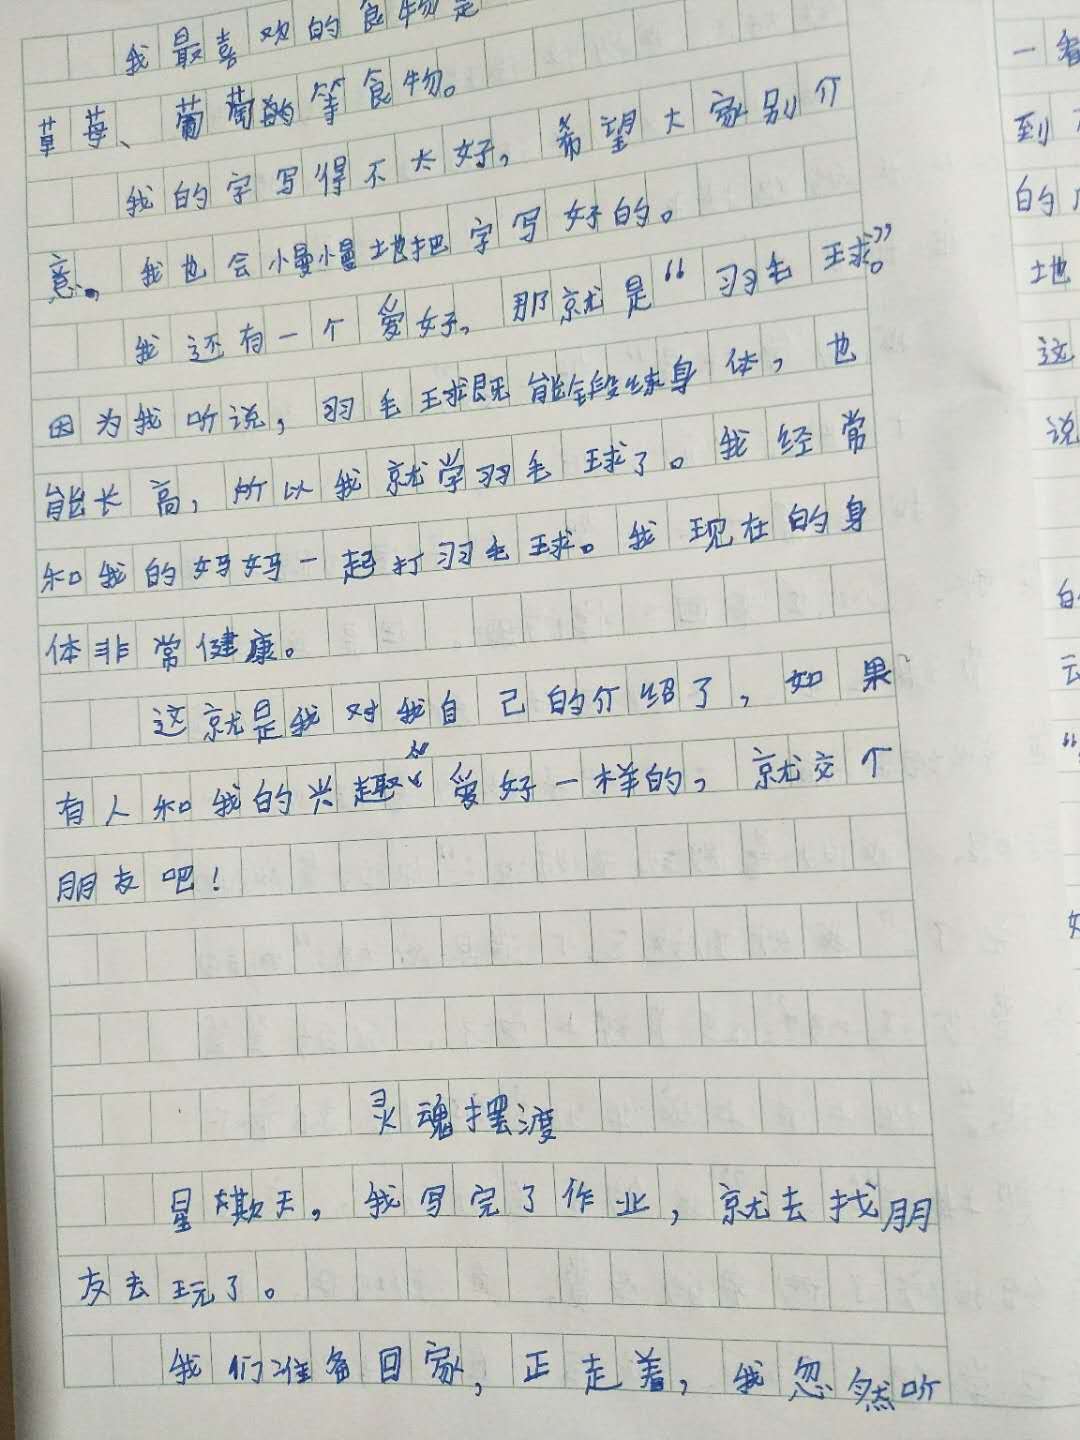 我最喜欢的食物是
草莓、葡萄的等食物。
我的字写得不太好，希望大家别介
意。我也会慢慢地把字写好的。
我还有一个爱好，那就是“羽毛球。”
因为我听说，羽毛球既能锻练身体，也
能长高，所以我就学羽毛球了。我经常
和我的妈妈一起打羽毛球。我现在的身
体非常健康。
这就是我对我自己的介绍了，如果
有人和我的兴趣和爱好一样的，就交个
朋友吧！
灵魂摆渡
星期天，我写完了作业，就去找朋
友去玩了。
我们准备回家，正走着，我忽然听
一看
到
的
地
这
说